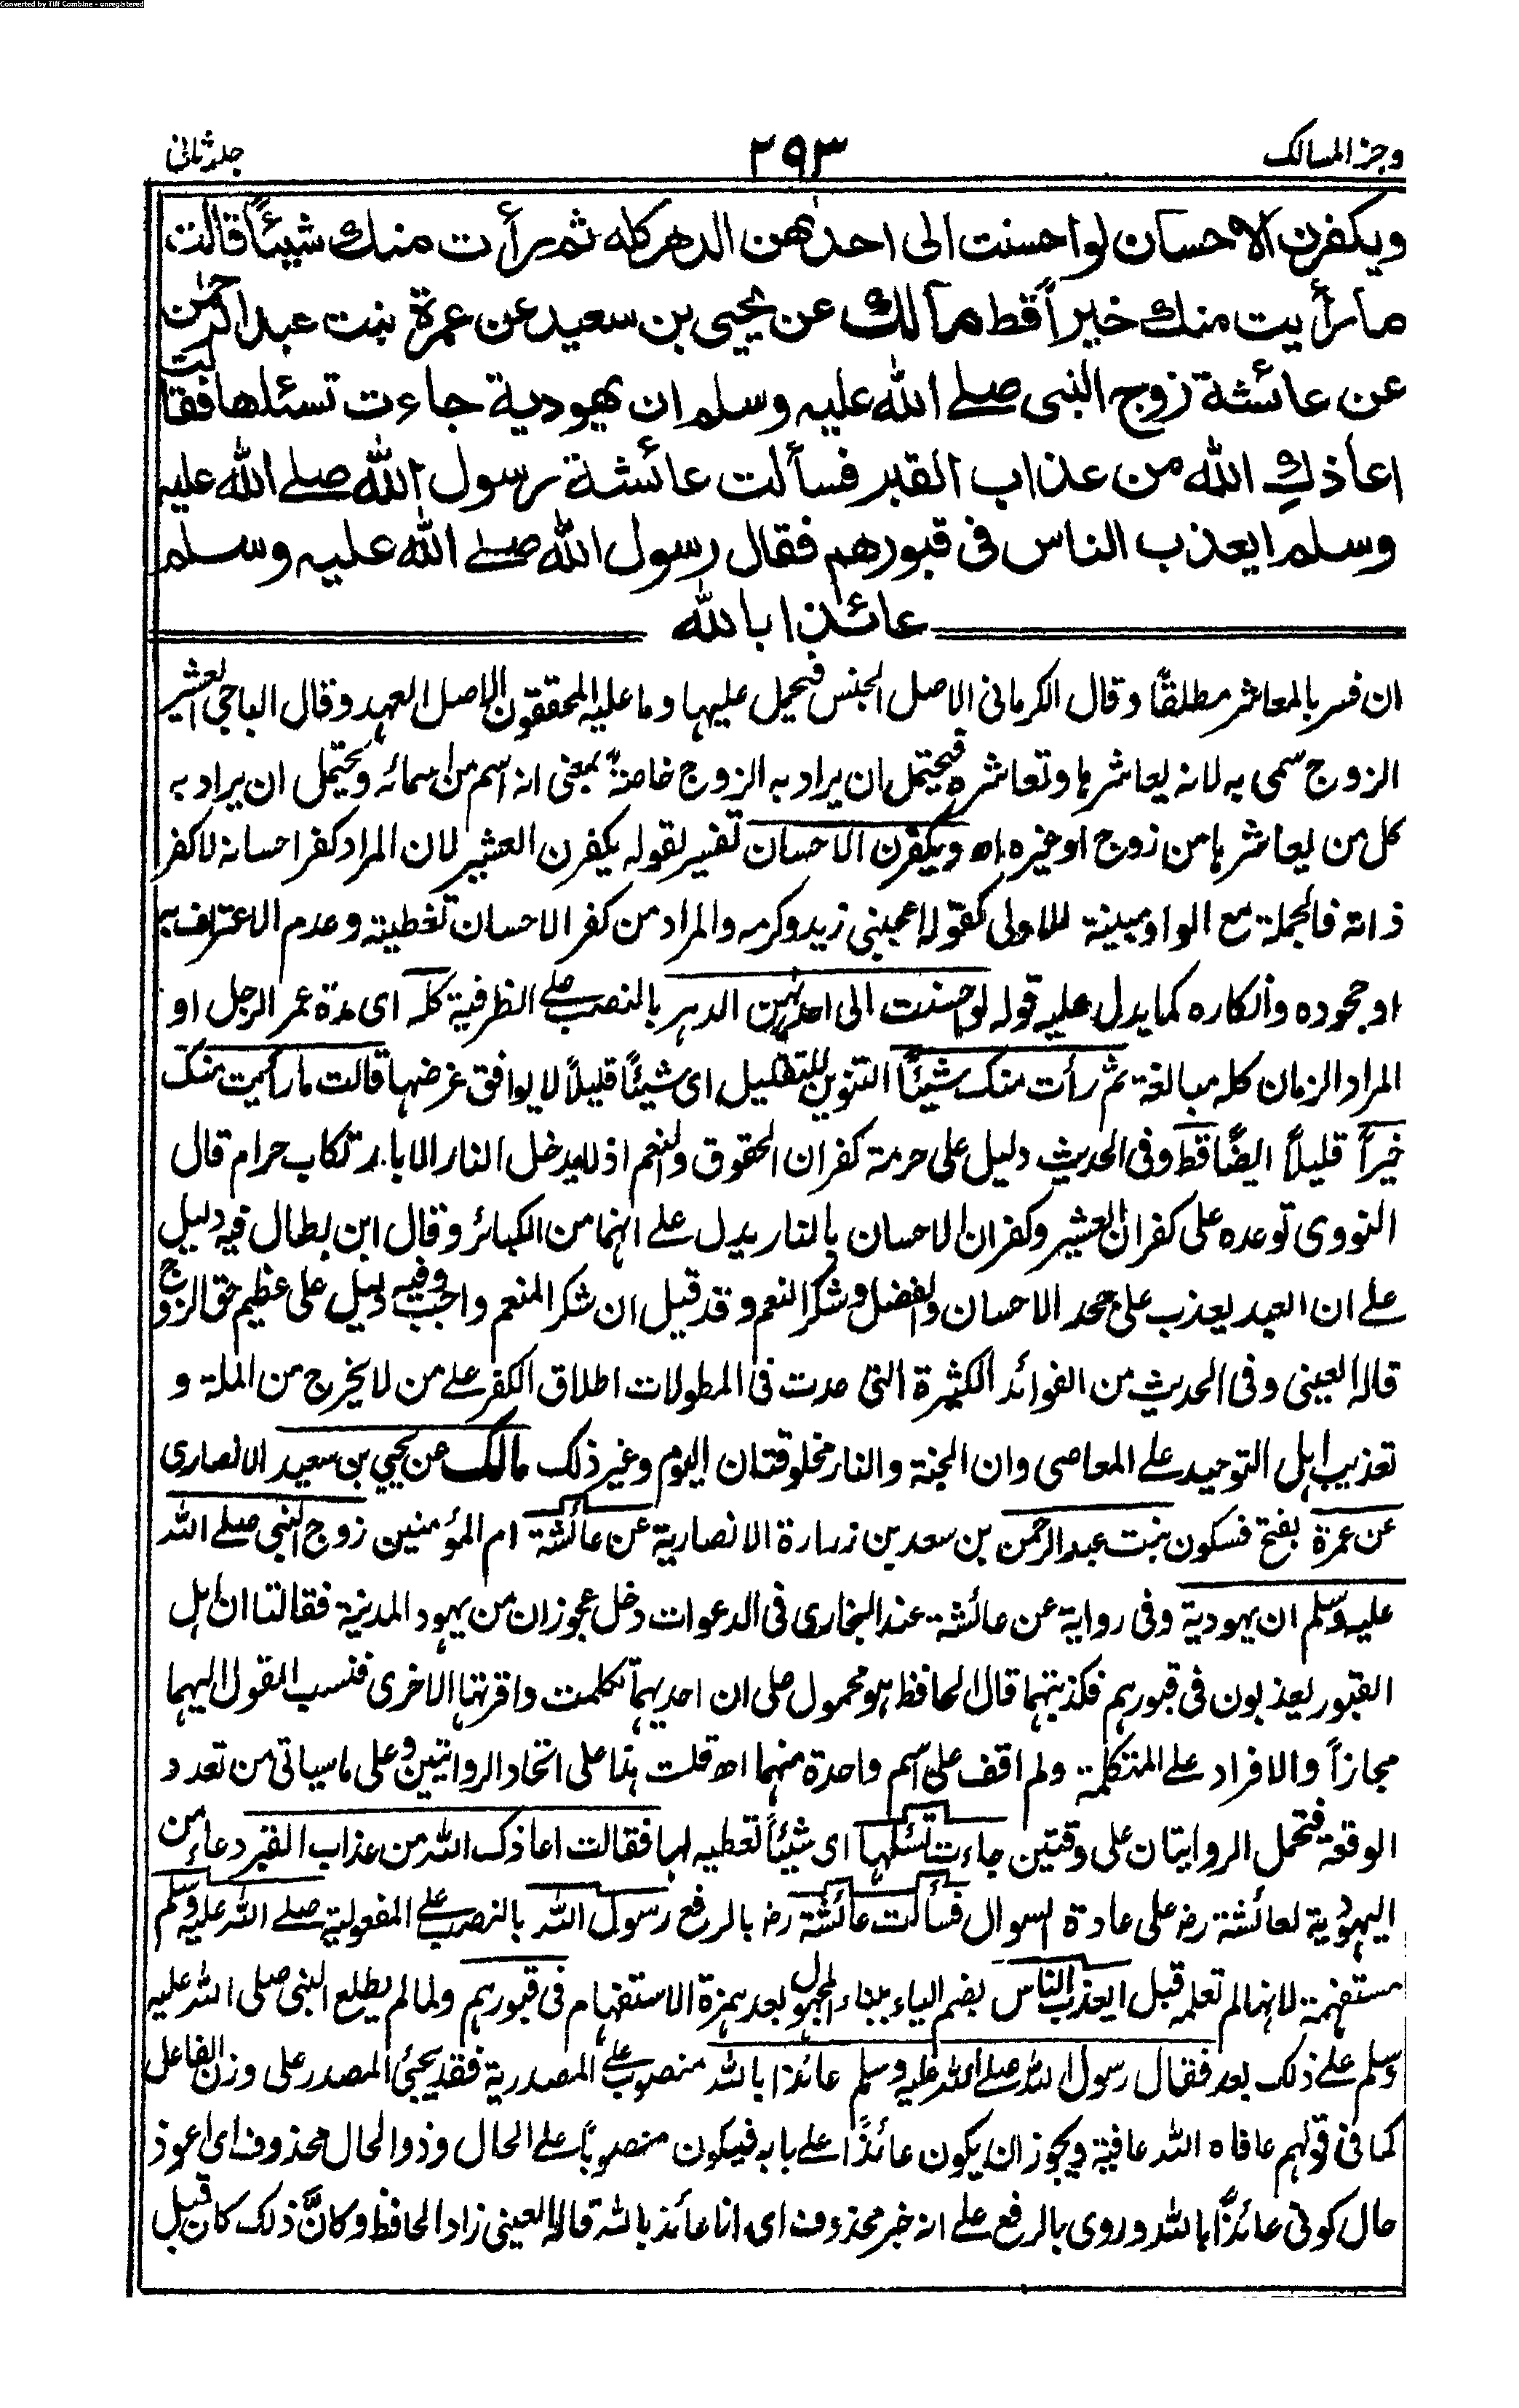 Converted by Tiff Combine - unregistered
وجز المسالك
٢٩٣
جلد ثانى
ويكفرن الاحسان لو احسنت الى احدٰهن الدهر كله ثم رأت منك شيئاً قالت
ما رأيت منك خيراً قط مالك عن يحيى بن سعيد عن عمرة بنت عبد الرحمٰن
عن عائشة زوج النبى صلے الله عليه وسلم ان يهودية جاءت تسئلها فقالت
اعاذكِ الله من عذاب القبر فسألت عائشة رسول الله صلے الله عليه
وسلم ايعذب الناس فى قبورهم فقال رسول الله صلے الله عليه وسلم
عائذا بالله
ان فسر بالمعاشر مطلقاً وقال الكرمانى الاصل الجنس فيحمل عليها وما عليه المحققون ان الاصل العهد وقال الباجى العشير
الزوج سمى به لانه يعاشرها وتعاشره فيحتمل ان يراد به الزوج خاصة بمعنى انه اسم من اسمائه ويحتمل ان يراد به
كل من يعاشرها من زوج او غيره اھ ويكفرن الاحسان تفسير لقوله يكفرن العشير لان المراد كفر احسانه لا كفر
ذاته فالجملة مع الواو مبينة للاولى كقوله اعجبنى زيد وكرمه والمراد من كفر الاحسان تغطيته وعدم الاعتراف به
او جحوده وانكاره كما يدل عليه قوله لو احسنت الى احدٰهن الدهر بالنصب على الظرفية كله اى مدة عمر الرجل او
المراد الزمان كله مبالغة ثم رأت منك شيئاً التنوين للتقليل اى شيئاً قليلاً لا يوافق غرضها قالت ما رأيت منك
خيراً قليلاً ايضاً قط وفى الحديث دليل على حرمة كفران الحقوق والنعم اذ لا يدخل النار الا بارتكاب حرام قال
النووى توعده على كفران العشير وكفران الاحسان بالنار يدل علے انهما من الكبائر وقال ابن بطال فيه دليل
علے ان العبد يعذب على جحد الاحسان والفضل وشكر النعم وقد قيل ان شكر المنعم واجب وفيه دليل على عظيم حق الزوج
قاله العينى وفى الحديث من الفوائد الكثيرة التى عدت فى المطولات اطلاق الكفر علے من لا يخرج من الملة و
تعذيب اهل التوحيد علے المعاصى وان الجنة والنار مخلوقتان اليوم وغير ذلك مالك عن يحيي بن سعيد الانصارى
عن عمرة بفتح فسكون بنت عبد الرحمن بن سعد بن زرارة الانصارية عن عائشة ام المؤمنين زوج النبى صلے الله
عليه وسلم ان يهودية وفى رواية عن عائشة عند البخارى فى الدعوات دخل عجوزان من يهود المدينة فقالتا ان اهل
القبور يعذبون فى قبورهم فكذبتهما قال الحافظ هو محمول على ان احديهما تكلمت واقرتها الاخرى فنسب القول اليهما
مجازاً والافراد علے المتكلمة ولم اقف على اسم واحدة منهما اھ قلت هذا على اتحاد الروايتين وعلى ما سياتى من تعدد
الوقعة فتحمل الروايتان على وقتين جاءت تسئلها اى شيئاً تعطيه لها فقالت اعاذك الله من عذاب القبر دعاء من
اليهودية لعائشة رض على عادة السوال فسألت عائشة رض بالرفع رسول الله بالنصب على المفعولية صلے الله عليه وسلم
مستفهمة لانها لم تعلمه قبل ايعذب الناس بضم الياء ببناء المجهول بعد همزة الاستفهام فى قبورهم ولما لم يطلع النبى صلى الله عليه
وسلم علے ذلك بعد فقال رسول الله صلے الله عليه وسلم عائذا بالله منصوب على المصدرية فقد يجئ المصدر على وزن الفاعل
كما فى قولهم عافاه الله عافية ويجوز ان يكون عائذاً على بابه فيكون منصوباً علے الحال وذو الحال محذوف اى اعوذ
حال كونى عائذاً بالله وروى بالرفع علے انه خبر محذوف اى انا عائذ بالله قاله العينى زاد الحافظ وكانّ ذلك كان قبل